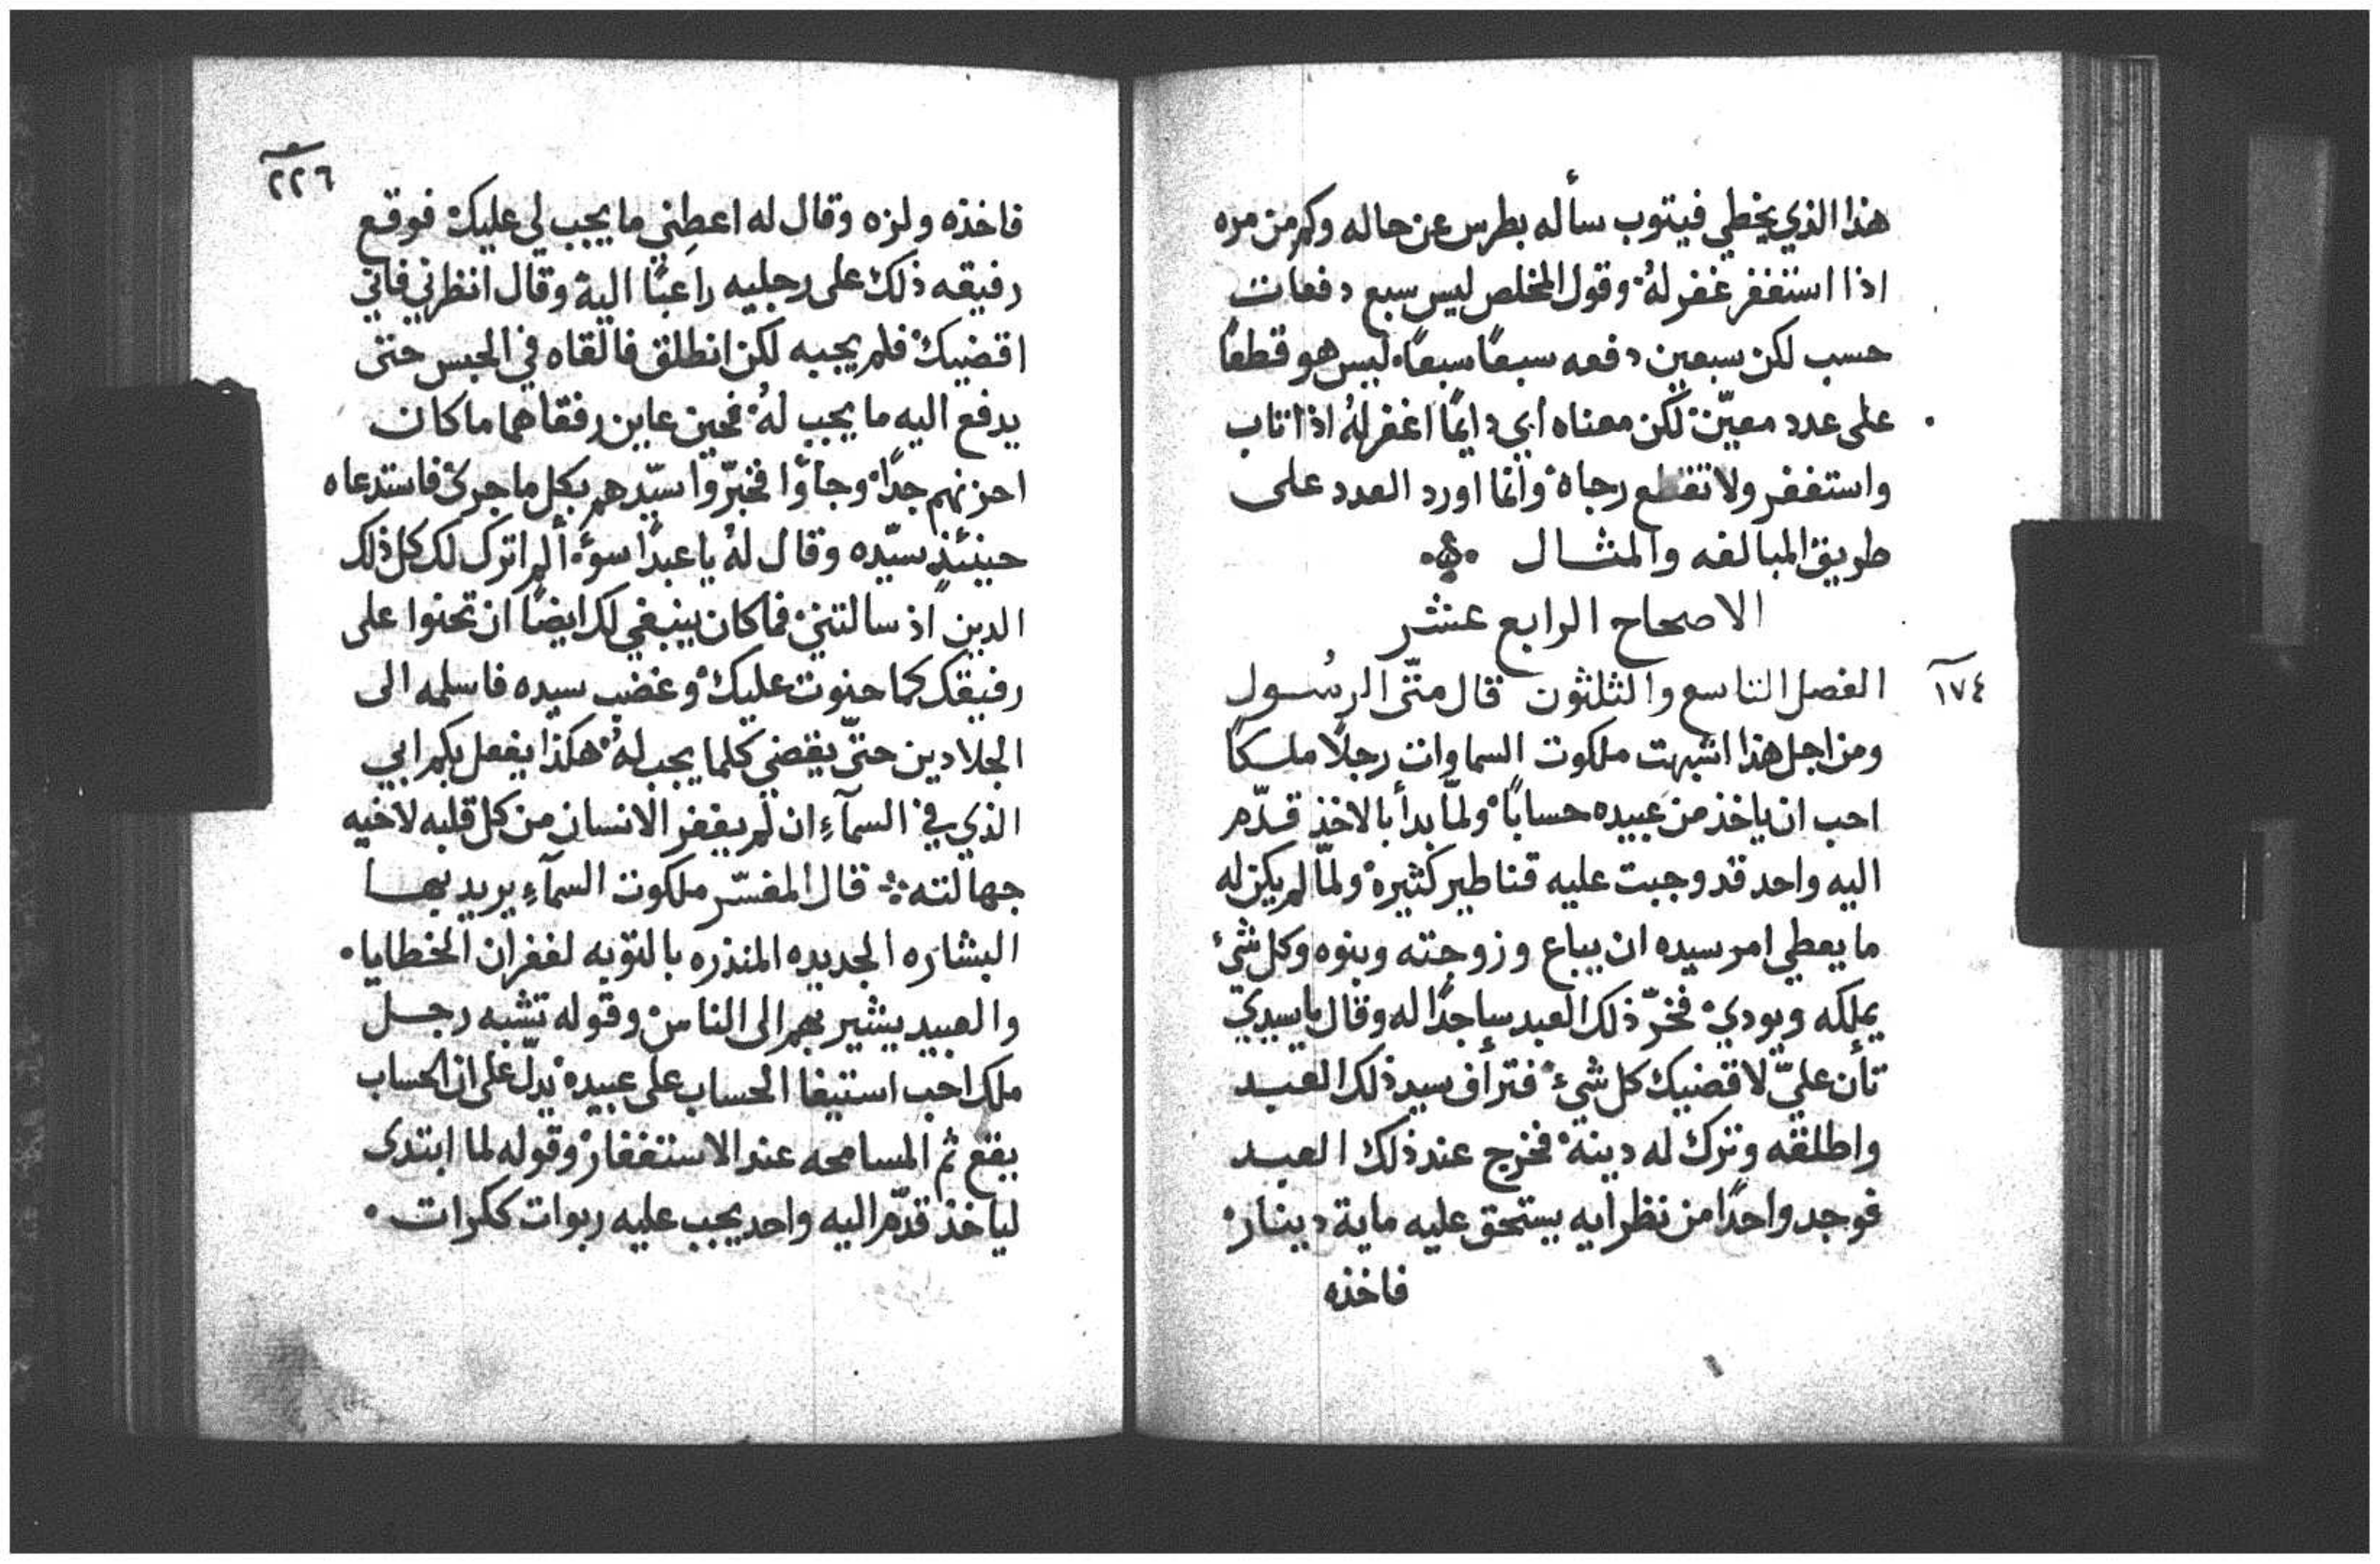 هذا الذي يخطي فيتوب سأله بطرس عن حاله وكم من مره
اذا استغفر غفر لهُ وقول المخلص ليس سبع دفعات
حسب لكن سبعين دفعه سبعًا سبعًا ليس هو قطعًا
على عدد معيّن لكن معناه أي دايمًا اغفر لهُ اذا تاب
واستغفر ولا تقطع رجاه وانما اورد العدد على
طريق المبالغه والمثال
الاصحاح الرابع عشر
١٧٤
الفصل التاسع والثلثون قال متّى الرسُول
ومن اجل هذا اشبهت ملكوت السماوات رجلًا ملكًا
احب ان ياخذ من عبيده حسابًا ولمّا بدأ بالاخذ قدّم
اليه واحد قد وجبت عليه قناطير كثيرة ولمّا لم يكن له
ما يعطي امر سيده ان يباع وزوجته وبنوه وكل شيء
يملكه ويودي فخرّ ذلك العبد ساجدًا له وقال يا سيدي
تأن عليّ لاقضيك كل شيء فترأف سيد ذلك العبد
واطلقه وترك له دينة فخرج عند ذلك العبد
فوجد واحدًا من نظرايه يستحق عليه ماية دينار
فاخذه
٢٢٦
فاخذه ولزه وقال له اعطِني ما يجب لي عليك فوقع
رفيقه ذلك على رجليه راغبًا الية وقال انظرني فاني
اقضيك فلم يجبه لكن انطلق فالقاه في الحبس حتى
يدفع اليه ما يجب لهُ فحين عاين رفقاهما ما كان
احزنهم جدًا وجاؤا فخبّروا سيّدهم بكل ما جرى فاستدعاه
حينئذٍ سيّده وقال لهُ يا عبدًا سوء ألم اترك لك كل ذلك
الدين اذ سالتني فما كان ينبغي لك ايضًا ان تحنوا على
رفيقك كما حنوت عليك وغضب سيده فاسلمه الى
الجلادين حتّى يقضي كلما يجب لهُ هكذا يفعل بكم ابي
الذي في السمآءِ ان لم يغفر الانسان من كل قلبه لاخيه
جهالته قال المفسّر ملكوت السمآءِ يريد بها
البشاره الجديده المنذره بالتوبه لغفران الخطايا
والعبيد يشير بهم الى الناس وقوله تشبه رجل
ملك احب استيفا الحساب على عبيدة يدلّ على ان الحساب
يقع ثم المسامحه عند الاستغفار وقوله لما ابتدى
لياخذ قدّم اليه واحد يجب عليه ربوات ككرات